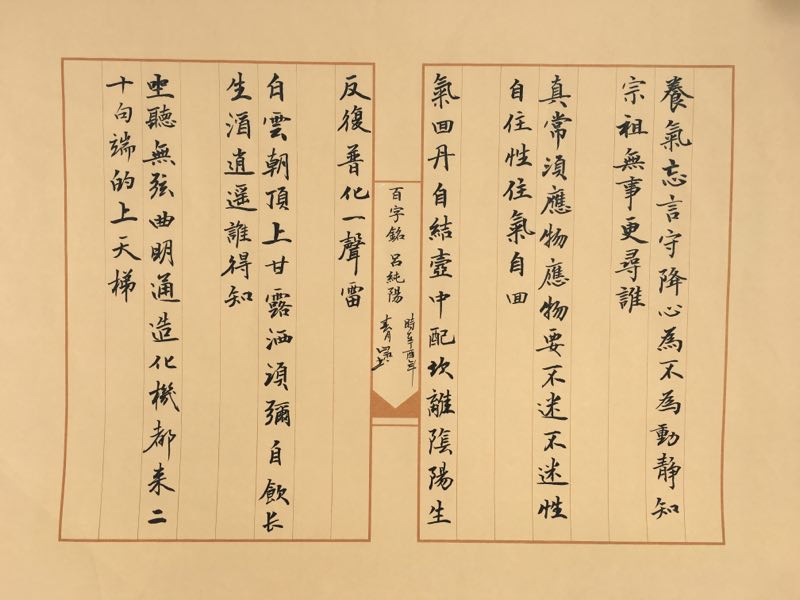 養氣忘言守降心為不為動靜知
宗祖無事更尋誰
真常須應物應物要不迷不迷性
自住性住氣自回
氣回丹自結壺中配坎離陰陽生
百字銘 呂純陽
反復普化一聲雷
白雲朝頂上甘露洒須彌自飲长
生酒逍遥誰得知
坐聽無弦曲明通造化機都来二
十句端的上天梯